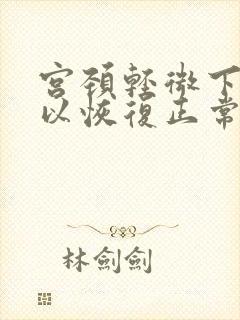 宫颈轻微下
以恢復正常
林劍劍